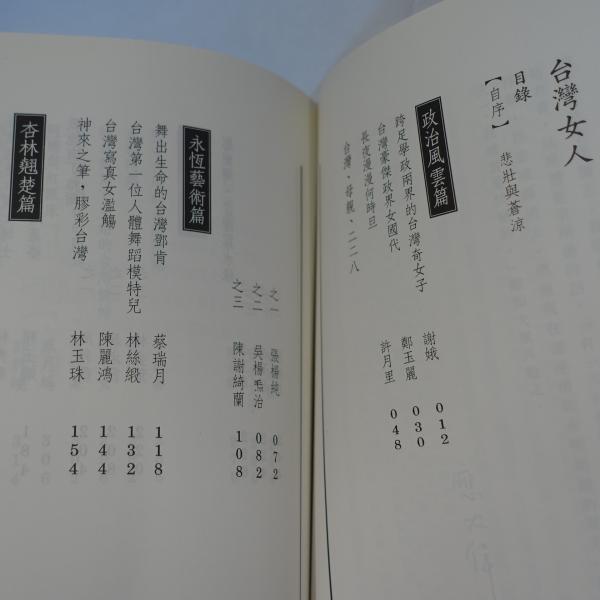 台灣女人
目錄
【自序】 悲壯與蒼涼
政治風雲篇
跨足學政兩界的台灣奇女子 謝娥 012
台灣豪傑政界女國代 鄭玉麗 030
長夜漫漫何時旦 許月里 048
台灣‧母親‧二二八
之一 張楊純 072
之二 吳楊𤆬治 082
之三 陳謝綺蘭 108
永恆藝術篇
舞出生命的台灣鄧肯 蔡瑞月 118
台灣第一位人體舞蹈模特兒 林絲緞 132
台灣寫真女濫觴 陳麗鴻 144
神來之筆，膠彩台灣 林玉珠 154
杏林翹楚篇